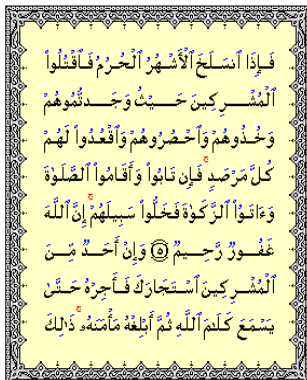 فَإِذَا ٱنسَلَخَ ٱلْأَشْهُرُ ٱلْحُرُمُ فَٱقْتُلُوا۟
ٱلْمُشْرِكِينَ حَيْثُ وَجَدتُّمُوهُمْ
وَخُذُوهُمْ وَٱحْصُرُوهُمْ وَٱقْعُدُوا۟ لَهُمْ
كُلَّ مَرْصَدٍۢ ۚ فَإِن تَابُوا۟ وَأَقَامُوا۟ ٱلصَّلَوٰةَ
وَءَاتَوُا۟ ٱلزَّكَوٰةَ فَخَلُّوا۟ سَبِيلَهُمْ ۚ إِنَّ ٱللَّهَ
غَفُورٌۭ رَّحِيمٌۭ ۝٥ وَإِنْ أَحَدٌۭ مِّنَ
ٱلْمُشْرِكِينَ ٱسْتَجَارَكَ فَأَجِرْهُ حَتَّىٰ
يَسْمَعَ كَلَـٰمَ ٱللَّهِ ثُمَّ أَبْلِغْهُ مَأْمَنَهُۥ ۚ ذَٰلِكَ